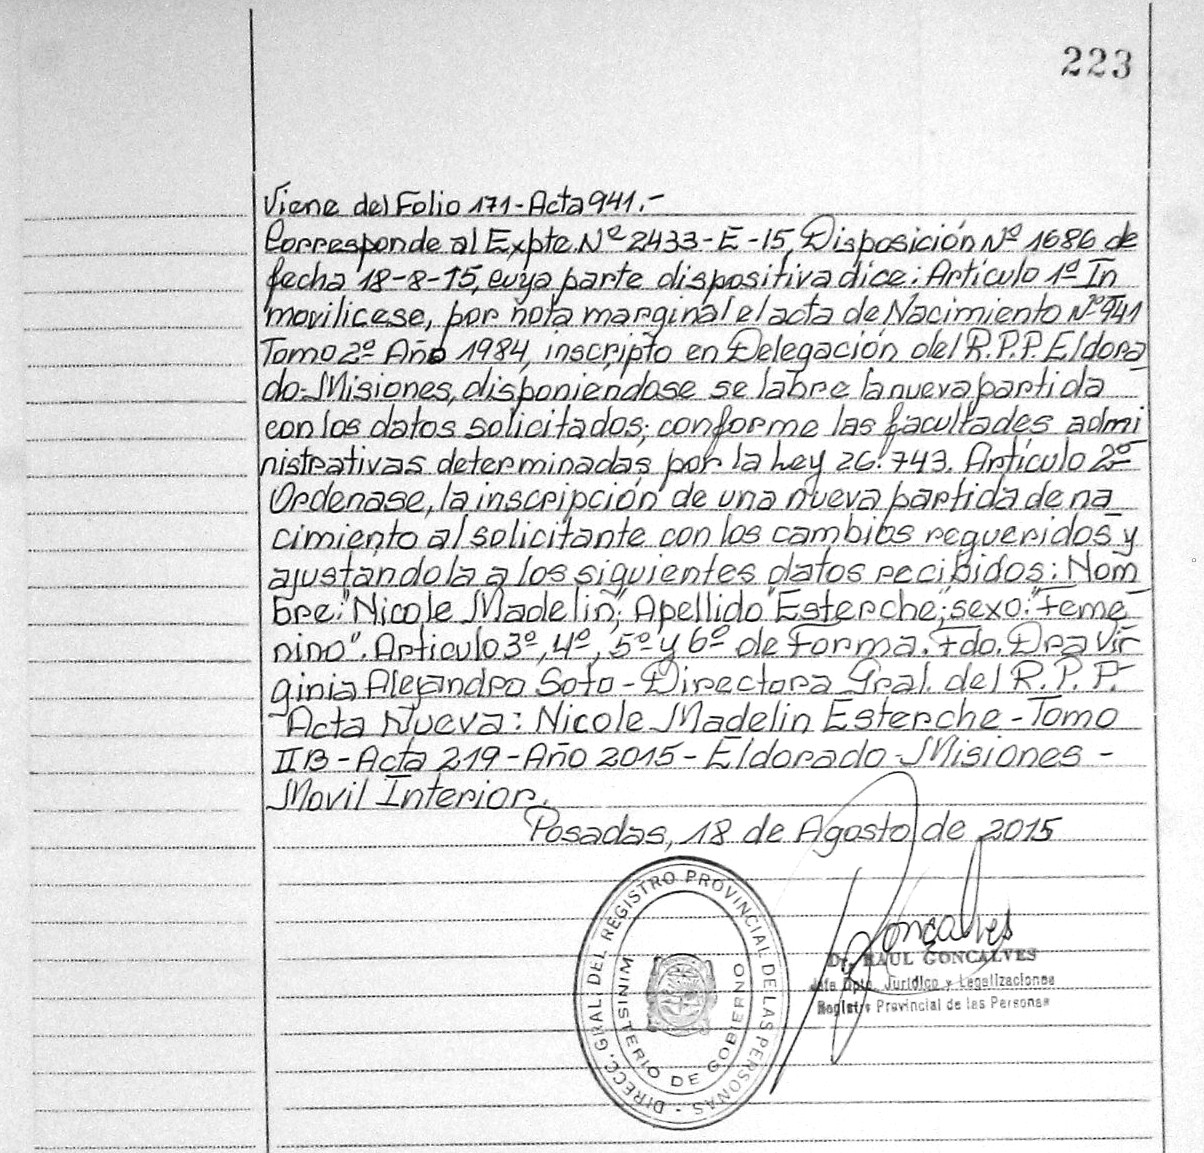 223
Viene del Folio 171-Acta 941.-
Corresponde al Expte. Nº 2433-E-15, Disposición Nº 1686 de
fecha 18-8-15, cuya parte dispositiva dice: Artículo 1º In
movilicese, por nota marginal el acta de Nacimiento Nº 941
Tomo 2º Año 1984, inscripto en Delegación del R.P.P. Eldora
do-Misiones, disponiendose se labre la nueva partida
con los datos solicitados; conforme las facultades admi
nistrativas determinadas por la Ley 26.743. Artículo 2º
Ordenase, la inscripción de una nueva partida de na
cimiento al solicitante con los cambios requeridos y
ajustandola a los siguientes datos recibidos: Nom
bre: "Nicole Madelin"; Apellido "Esterche"; sexo: "Feme
nino". Articulo 3º, 4º, 5º y 6º de Forma. Fdo. Dra Vir
ginia Alejandro Soto - Directora Gral. del R.P.P.
Acta Nueva: Nicole Madelin Esterche - Tomo
IIB - Acta 219 - Año 2015 - Eldorado - Misiones -
Movil Interior.
Posadas, 18 de Agosto de 2015
DIRECC. GRAL. DEL REGISTRO PROVINCIAL DE LAS PERSONAS -
MINISTERIO DE GOBIERNO
Goncalves
Dr. RAUL GONCALVES
Jefe Dpto. Jurídico y Legalizaciones
Registro Provincial de las Personas